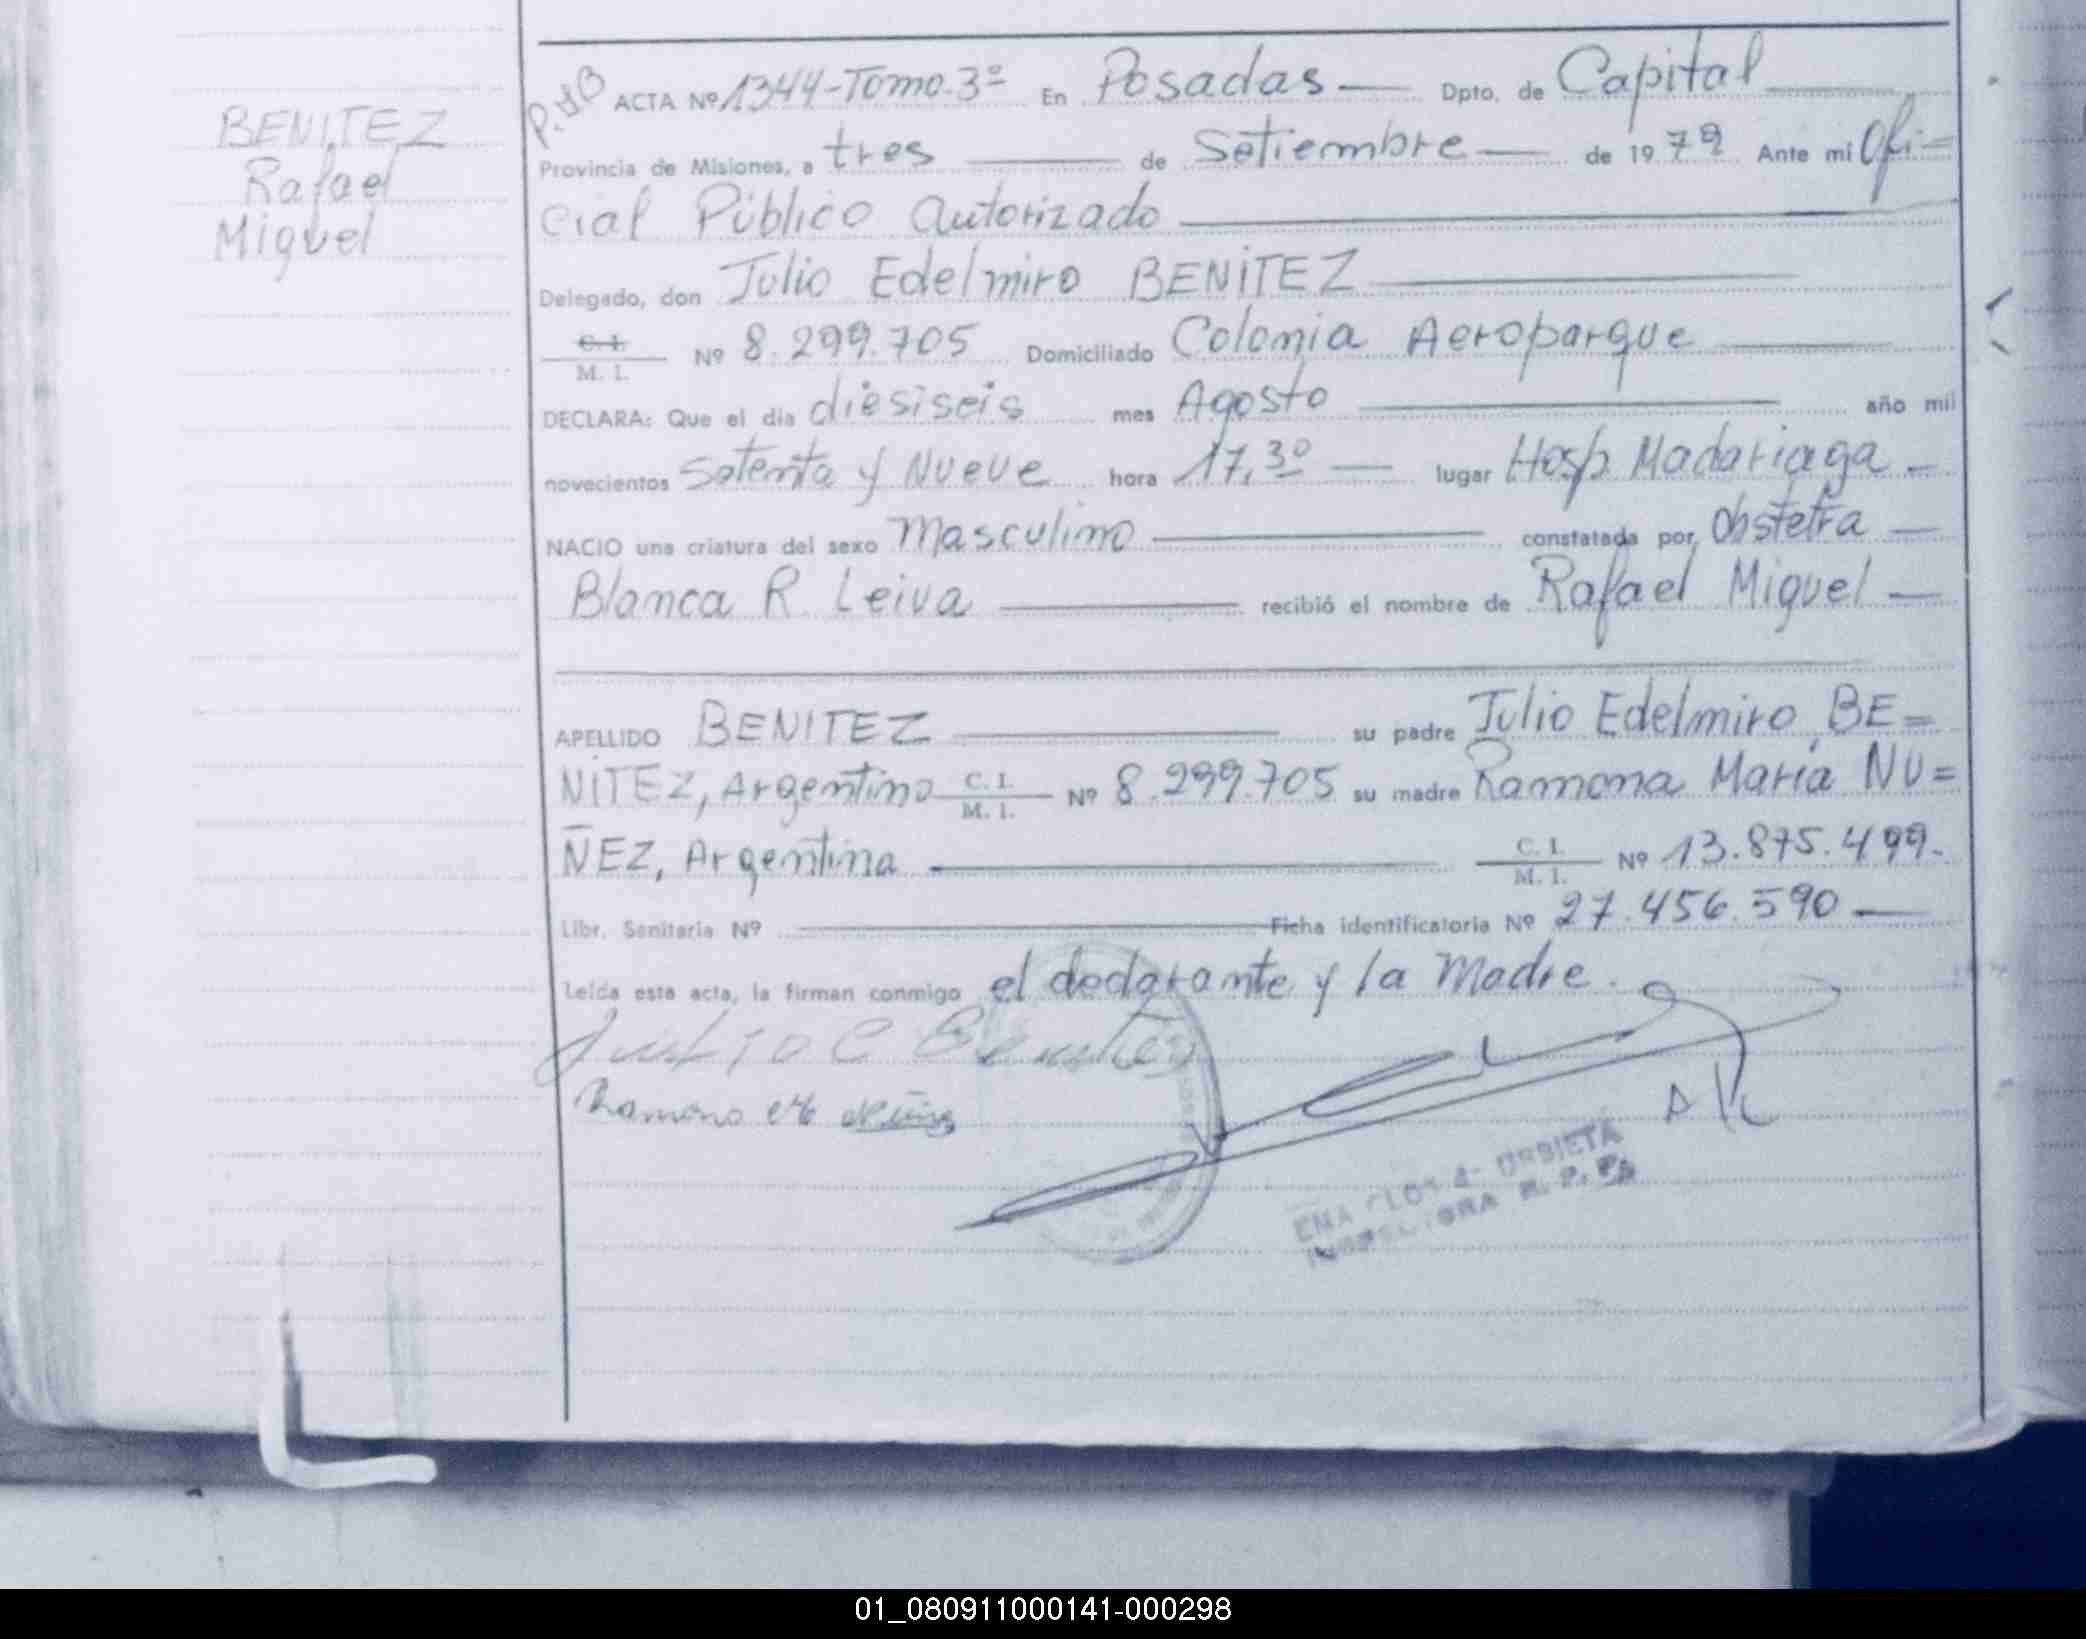 BENITEZ
Rafael
Miguel
ACTA Nº 1344-Tomo.3º En Posadas Dpto. de Capital
Provincia de Misiones, a tres de Setiembre de 1979 Ante mi Ofi=
cial Público autorizado
Delegado, don Julio Edelmiro BENITEZ
C. I. M. I. Nº 8.299.705 Domiciliado Colonia Aeroparque
DECLARA: Que el dia diesiseis mes Agosto año mil
novecientos setenta y Nueve hora 17,30 lugar Hosp. Madariaga
NACIO una criatura del sexo Masculino constatada por Obstetra
Blanca R. Leiva recibió el nombre de Rafael Miguel
APELLIDO BENITEZ su padre Julio Edelmiro BE=
NITEZ, Argentino C. I. M. I. Nº 8.299.705 su madre Ramona María NU=
ÑEZ, Argentina C. I. M. I. Nº 13.875.499.
Libr. Sanitaria Nº Ficha identificatoria Nº 27.456.590
Leída esta acta, la firman conmigo el declarante y la Madre.
Julio E Benitez
URBIETA
01_080911000141-000298